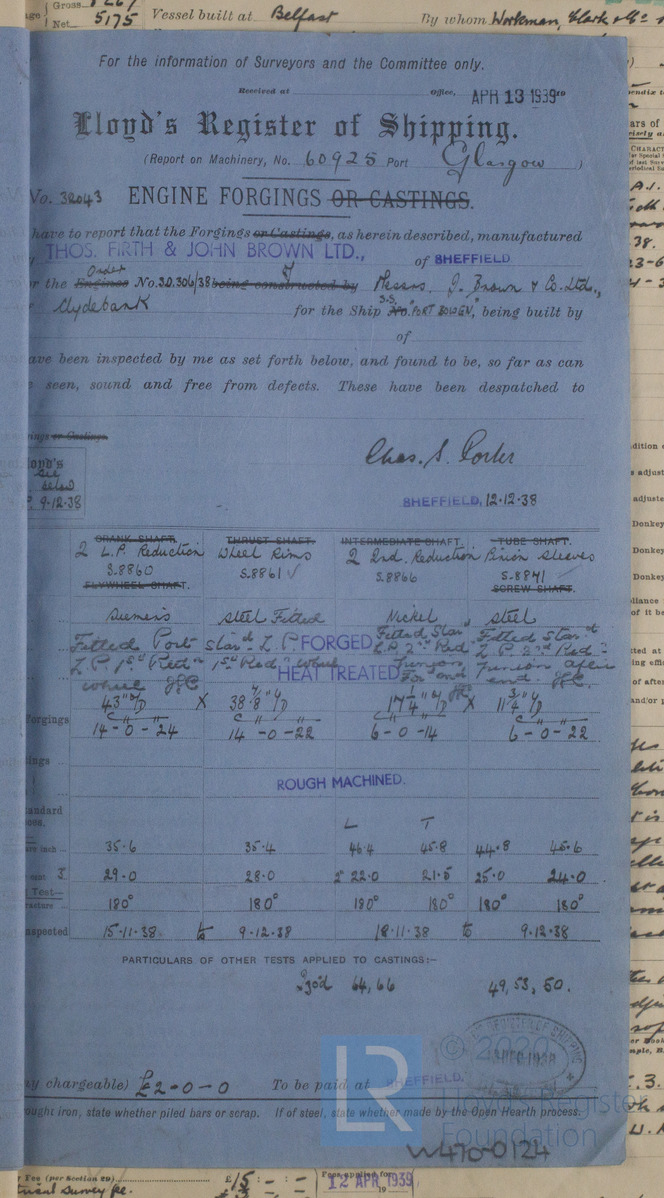 Gross
Net 5175 Vessel built at Belfast By whom Workman, Clark & Co
For the information of Surveyors and the Committee only.
Received at Office, APR 13 1939
Lloyd's Register of Shipping.
(Report on Machinery, No. 60925 Port Glasgow )
No. 32043 ENGINE FORGINGS OR CASTINGS.
have to report that the Forgings or Castings, as herein described, manufactured
THOS. FIRTH & JOHN BROWN LTD., of SHEFFIELD.
Order of
the Engines No. 30306/38 being constructed by Messrs, J. Brown & Co. Ltd.,
Clydebank for the Ship S.S. No. "PORT BOWEN", being built by
of
have been inspected by me as set forth below, and found to be, so far as can
seen, sound and free from defects. These have been despatched to
or Castings
Chas. S. Porter
Lloyd's
See
below
9-12-38
SHEFFIELD, 12-12-38
CRANK SHAFT. THRUST SHAFT. INTERMEDIATE SHAFT. TUBE SHAFT.
2 L.P. Reduction Wheel Rims 2 2nd. Reduction Pinion Sleeves
S.8860 S.8861 ✓ S.8866 S-8871
FLYWHEEL SHAFT. SCREW SHAFT.
Siemens Steel Nickel Steel
Fitted Port Star'd L.P. FORGED
HEAT TREATED
wheel
43" X 38 17 1/4" X 11 3/4"
C " "
forgings 14 - 0 - 24 14 - 0 - 22 6 - 0 - 14 6 - 0 - 22
ROUGH MACHINED.
L T
35.6 35.4 46.4 45.8 44.8 45.6
29.0 28.0 2" 22.0 21.5 25.0 24.0
Test—
180° 180° 180° 180° 180° 180°
inspected 15-11-38 to 9-12-38 18-11-38 to 9-12-38
PARTICULARS OF OTHER TESTS APPLIED TO CASTINGS:—
Izod 64, 66 49, 53, 50.
LR
© 2020
chargeable) £2-0-0 To be paid at SHEFFIELD.
Lloyd's Register
Foundation
ought iron, state whether piled bars or scrap. If of steel, state whether made by the Open Hearth process.
W470-0124
Fee (per Section 29) £15 : - : - Fees applied for
12 APR 1939